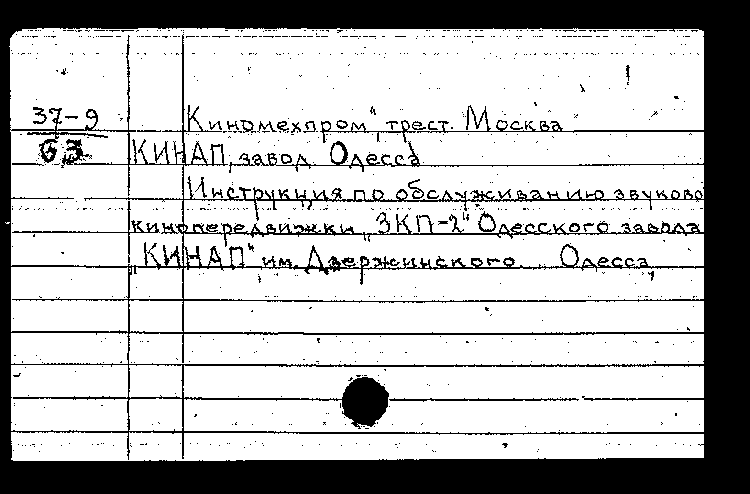 37-9 Киномехпром", трест. Москва
63 КИНАП, завод. Одесса
Инструкция по обслуживанию звуково
кинопередвижки „ЗКП-2" Одесского завода
„КИНАП" им. Дзержинского Одесса,